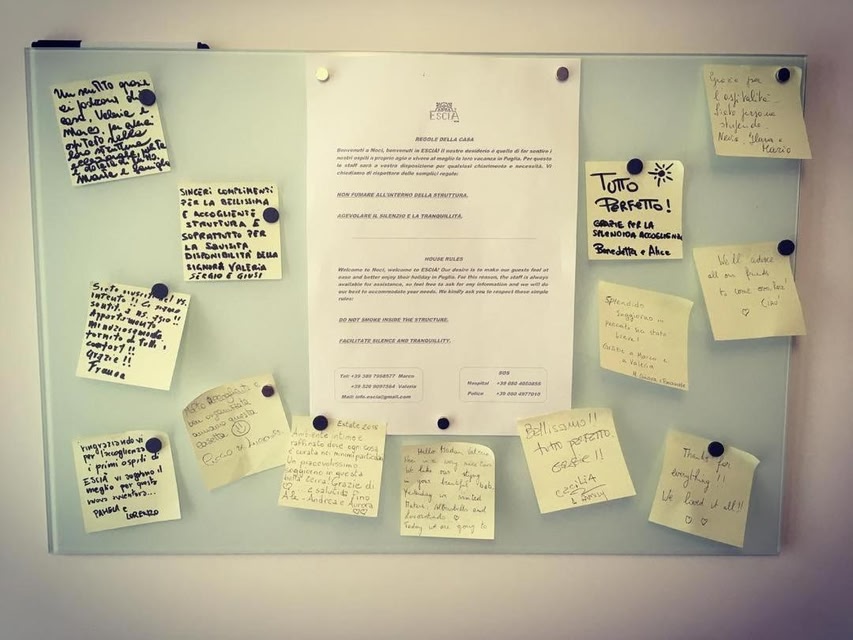 Un molto grazie
ai padroni di
casa, Valeria e
Marco, per
ospitalità della
loro struttura
Maria e famiglia
SINCERI COMPLIMENTI
PER LA BELLISSIMA
E ACCOGLIENTE
STRUTTURA E
SOPRATTUTTO PER
LA SQUISITA
DISPONIBILITÀ DELLA
SIGNORA VALERIA
SERGIO E GIUSI
Siete riusciti nel vs.
intento!! Ci siamo
sentiti a ns. agio!!
Appartamento
minuziosamente
fornito di tutti i
comfort!!
Grazie!!
Franca
ringraziando vi
per l'accoglienza
i primi ospiti di
ESCIÀ vi augurano il
meglio per questa
nuova avventura...
PAMELA e
LORENZO
ben organizzata
questa
casetta
Estate 2018
Ambiente intimo e
raffinato dove ogni cosa
è curata nei minimi particolari
Un piacevolissimo
soggiorno in questa
bella terra! Grazie di
e salutoni fino
Andrea e Aurora
ESCIÀ
REGOLE DELLA CASA
Benvenuti a Noci, benvenuti in ESCIÀ! Il nostro desiderio è quello di far sentire i
nostri ospiti a proprio agio e vivere al meglio la loro vacanza in Puglia. Per questo
lo staff sarà a vostra disposizione per qualsiasi chiarimento e necessità. Vi
chiediamo di rispettare delle semplici regole:
NON FUMARE ALL'INTERNO DELLA STRUTTURA.
AGEVOLARE IL SILENZIO E LA TRANQUILLITÀ.
HOUSE RULES
Welcome to Noci, welcome to ESCIÀ! Our desire is to make our guests feel at
ease and better enjoy their holiday in Puglia. For this reason, the staff is always
available for assistance, so feel free to ask for any information and we will do
our best to accommodate your needs. We kindly ask you to respect these simple
rules:
DO NOT SMOKE INSIDE THE STRUCTURE.
FACILITATE SILENCE AND TRANQUILLITY.
Tel: +39 389 7958577 Marco
+39 328 9097584 Valeria
Mail: info.escia@gmail.com
SOS
Hospital +39 080 4050855
Police +39 080 4977010
Hello
nice
We like our stay
in your beautiful
Yesterday we visited
Matera, Alberobello and
Locorotondo
Today we are going to
Bellissimo!!
tutto perfetto
GRAZIE!!
CECILIA
TUTTO
PERFETTO!
GRAZIE PER LA
SPLENDIDA ACCOGLIENZA
Benedetta e Alice
Splendido
soggiorno in
breve!
Grazie a Marco e
a Valeria
Grazie per
l'ospitalità
Siete persone
stupende.
Ilaria e
Mario
We'll advise
all our friends
to come over here!
Ciao!
Thanks for
everything!!
We loved it all!!